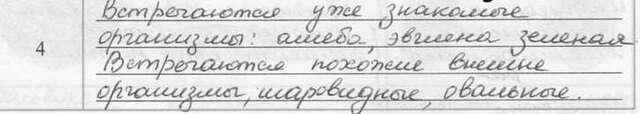 Встречаются уже знакомые
4 организмы: амеба, эвглена зеленая.
Встречаются похожие внешне
организмы, шаровидные, овальные.